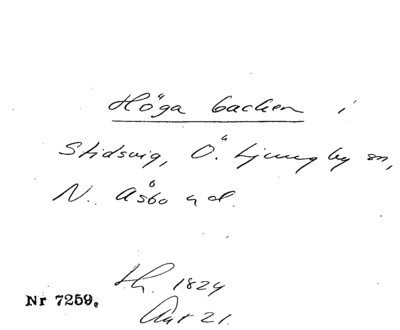 Höga backen i
Stidsvig, Ö. Ljungby sn,
N. Åsbo hd.
1824
Nr 7259.
Akt 21.